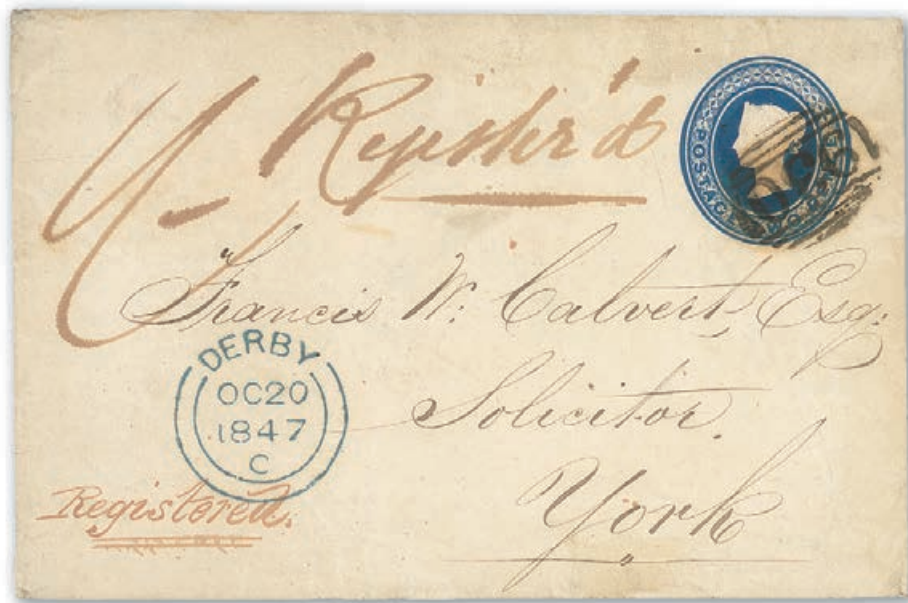 Register'd
POSTAGE
Francis W. Calvert, Esq:
Solicitor.
York
DERBY
OC20
1847
C
Registered.